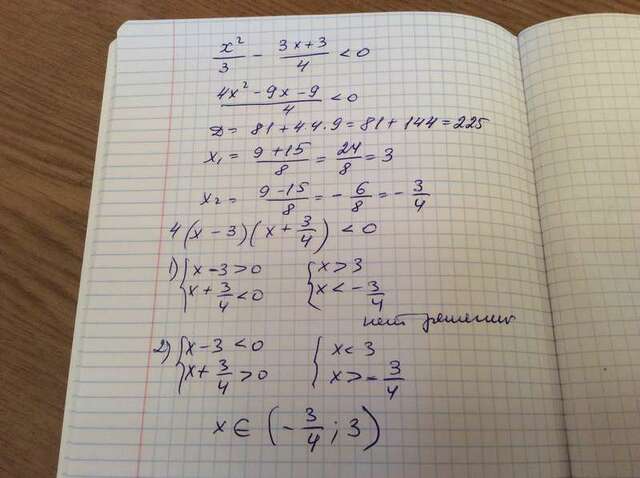 x²/3 - 3x+3/4 < 0
4x² - 9x - 9/4 < 0
D = 81 + 4·4·9 = 81 + 144 = 225
x₁ = 9+15/8 = 24/8 = 3
x₂ = 9-15/8 = - 6/8 = - 3/4
4(x - 3)(x + 3/4) < 0
1) { x - 3 > 0 { x > 3
x + 3/4 < 0 x < - 3/4
нет решения
2) { x - 3 < 0 { x < 3
x + 3/4 > 0 x > - 3/4
x ∈ (- 3/4 ; 3)